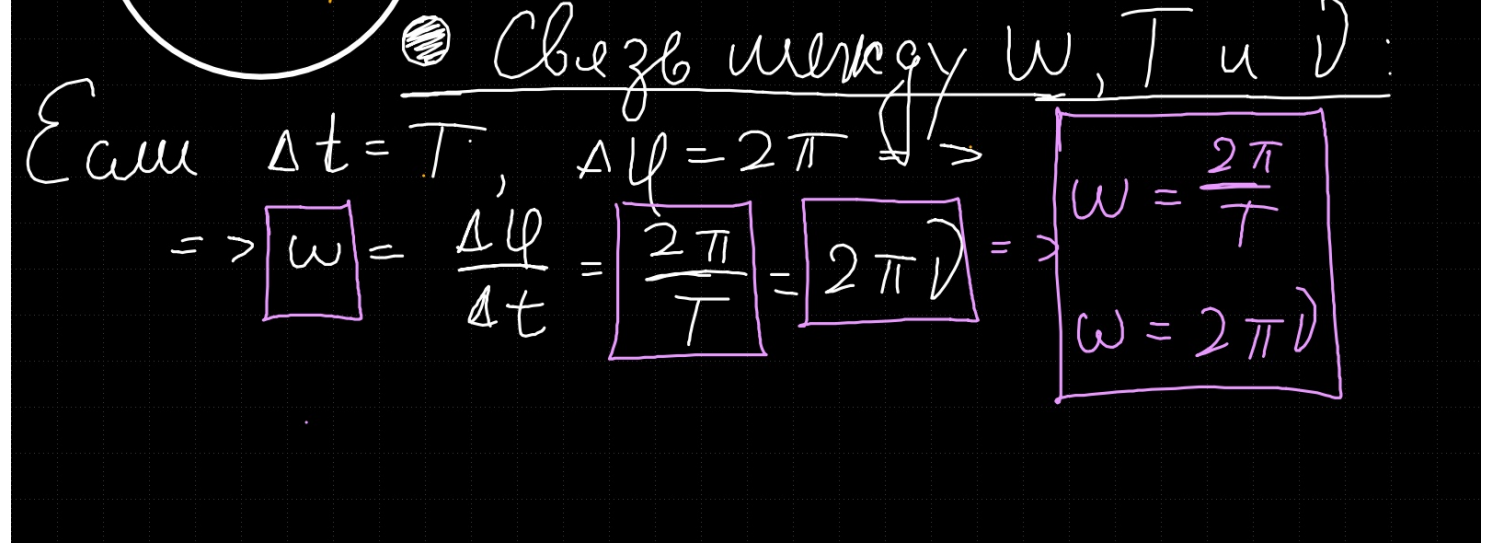 Связь между ω, T и ν:
Если Δt = T, Δφ = 2π =>
=> ω = Δφ/Δt = 2π/T = 2πν =>
ω = 2π/T
ω = 2πν